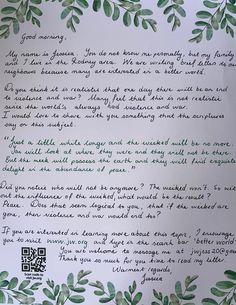 Good morning,
My name is Jessica. You do not know me personally, but my family
and I live in the Rodney area. We are writing brief letters to our
neighbours because many are interested in a better world.
Do you think it is realistic that one day there will be an end
to violence and war? Many feel that this is not realistic
since the world's always had violence and war.
I would love to share with you something that the scriptures
say on this subject.
"Just a little while longer and the wicked will be no more.
You will look at where they were and they will not be there.
But the meek will possess the earth and they will find exquisite
delight in the abundance of peace."
Did you notice who will not be anymore? The wicked won't. So with
out the influence of the wicked, what would be the result?
Peace. Does that seem logical to you, that if the wicked are
gone, then violence and war would end too?
If you are interested in learning more about this topic, I encourage
you to visit www.jw.org and type in the search bar "better world".
You are welcome to message me at
Thank you so much for you time to read my letter.
Warmest regards,
Jessica